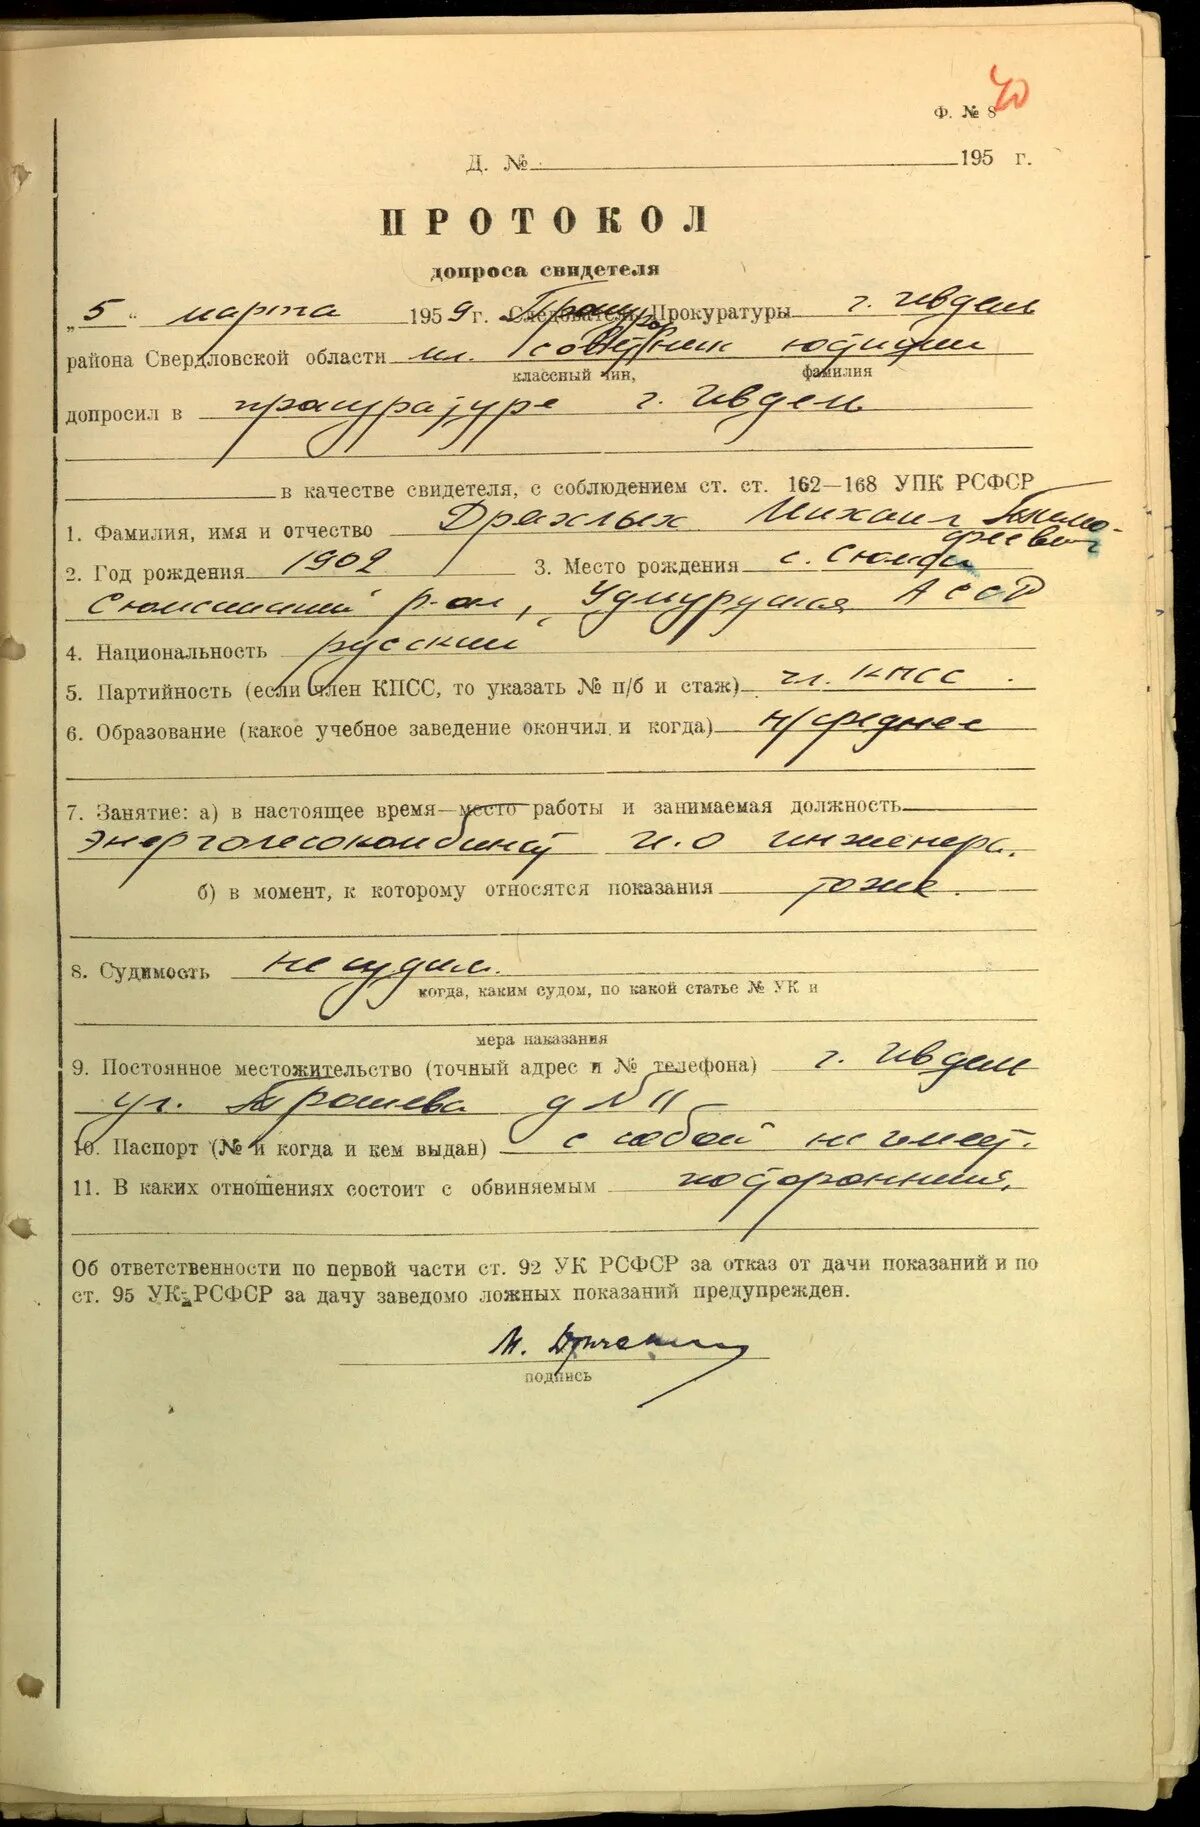 40
Ф. № 8
Д. № 195 г.
ПРОТОКОЛ
допроса свидетеля
„5“ марта 1959 г. Следователь Прокурор Прокуратуры г. Ивдель
района Свердловской области мл. советник юстиции
классный чин, фамилия
допросил в прокуратуре г. Ивдель
в качестве свидетеля, с соблюдением ст. ст. 162—168 УПК РСФСР
1. Фамилия, имя и отчество Дряхлых Михаил Тимо-
фиевич
2. Год рождения 1902 3. Место рождения с. Сюмси
Сюмсинский р-он, Удмуртская АССР
4. Национальность русский
5. Партийность (если член КПСС, то указать № п/б и стаж) чл. КПСС.
6. Образование (какое учебное заведение окончил и когда) н/среднее
7. Занятие: а) в настоящее время—место работы и занимаемая должность
Энерголесокомбинат и.о инженера.
б) в момент, к которому относятся показания тоже.
8. Судимость не судим.
когда, каким судом, по какой статье № УК и
мера наказания
9. Постоянное местожительство (точный адрес и № телефона) г. Ивдель
ул. Трошева д № 11
10. Паспорт (№ и когда и кем выдан) с собой не имеет.
11. В каких отношениях состоит с обвиняемым посторонний.
Об ответственности по первой части ст. 92 УК РСФСР за отказ от дачи показаний и по
ст. 95 УК РСФСР за дачу заведомо ложных показаний предупрежден.
М.
подпись